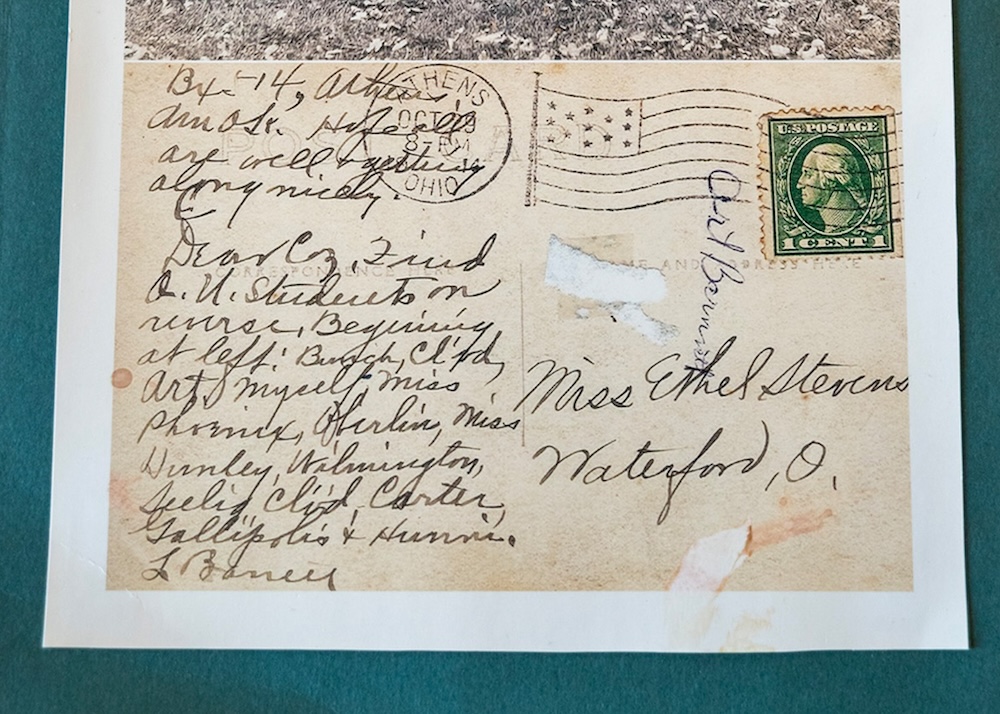 Bx - 14, Athens,
Am O.K. Hope all
are well & getting
along nicely.
Dear Coz, Find
O. U. Students on
reverse, Begining
at left: Burch, Cl'f'd,
Art, Myself, Miss
Phoenix, Oberlin, Miss
Hunley, Wilmington,
Seelig, Cl'f'd, Carter,
Gallipolis &
L
ATHENS
OCT
8 PM
OHIO
U.S. POSTAGE
1 CENT 1
POST CARD
CORRESPONDENCE HERE
NAME AND ADDRESS HERE
Art
Miss Ethel Stevens
Waterford, O.